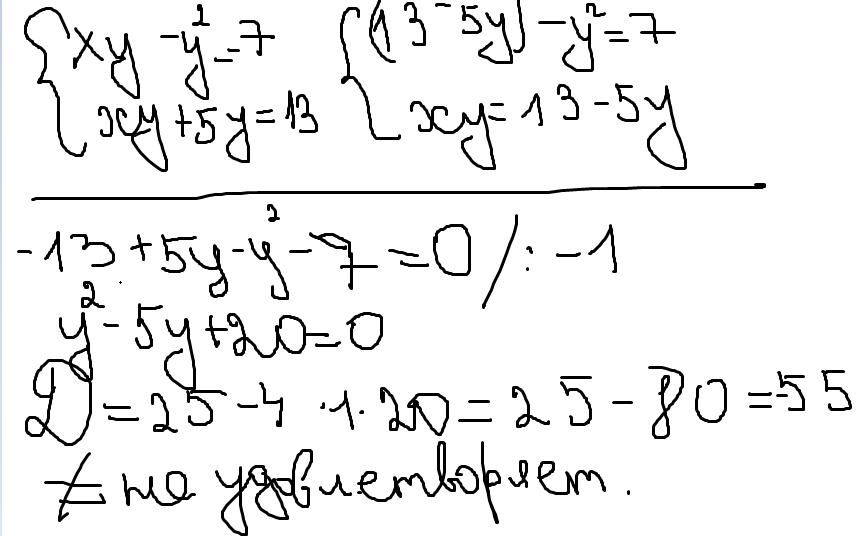 {xy - y² = 7 {(13 - 5y) - y² = 7
xy + 5y = 13 xy = 13 - 5y
-13 + 5y - y² - 7 = 0 /: -1
y² - 5y + 20 = 0
D = 25 - 4 · 1 · 20 = 25 - 80 = 55
≠ не удовлетворяет.